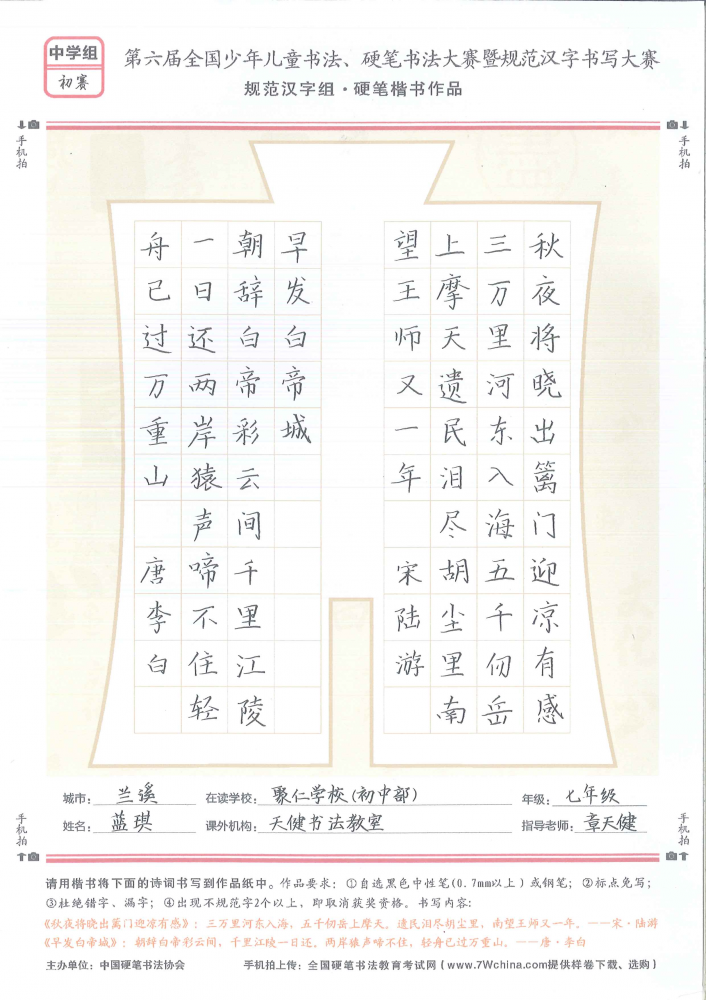 中学组
初赛
第六届全国少年儿童书法、硬笔书法大赛暨规范汉字书写大赛
规范汉字组·硬笔楷书作品
手机拍
手机拍
秋夜将晓出篱门迎凉有感
三万里河东入海五千仞岳
上摩天遗民泪尽胡尘里南
望王师又一年 宋陆游
早发白帝城
朝辞白帝彩云间千里江陵
一日还两岸猿声啼不住轻
舟已过万重山 唐李白
手机拍
手机拍
城市：兰溪 在读学校：聚仁学校(初中部) 年级：七年级
姓名：蓝琪 课外机构：天健书法教室 指导老师：章天健
请用楷书将下面的诗词书写到作品纸中。作品要求：①自选黑色中性笔(0.7mm以上)或钢笔；②标点免写；
③杜绝错字、漏字；④出现不规范字2个以上，即取消获奖资格。书写内容：
《秋夜将晓出篱门迎凉有感》：三万里河东入海，五千仞岳上摩天。遗民泪尽胡尘里，南望王师又一年。——宋·陆游
《早发白帝城》：朝辞白帝彩云间，千里江陵一日还。两岸猿声啼不住，轻舟已过万重山。——唐·李白
主办单位：中国硬笔书法协会 手机拍上传：全国硬笔书法教育考试网（www.7Wchina.com提供样卷下载、选购）